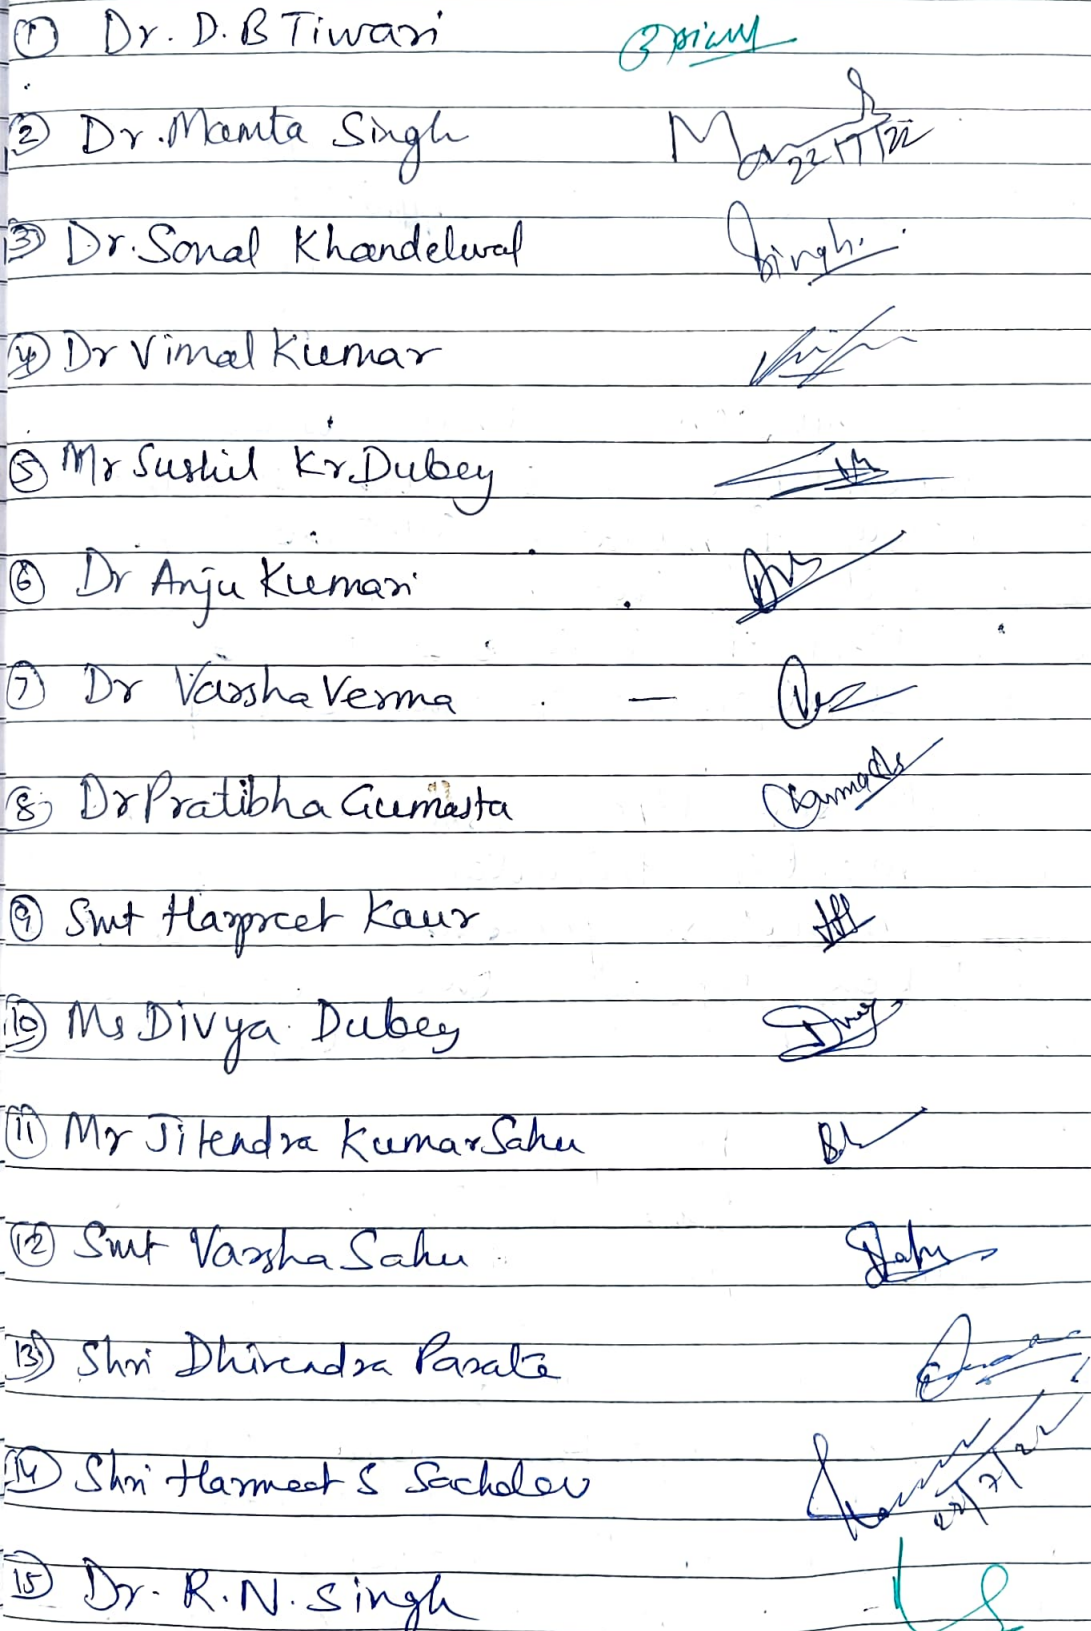 1 Dr. D. B Tiwari
2 Dr. Mamta Singh 22/7/22
3 Dr. Sonal Khandelwal Singh
4 Dr Vimal Kumar
5 Mr Sushil Kr. Dubey
6 Dr Anju Kumari
7 Dr Varsha Verma –
8 Dr Pratibha Gumasta
9 Smt Harpreet Kaur
10 Ms Divya Dubey
11 Mr Jitendra Kumar Sahu
12 Smt Varsha Sahu Sahu
13 Shri Dhirendra Parate
14 Shri Harmeet S Sachdev 22/7/22
15 Dr. R. N. Singh